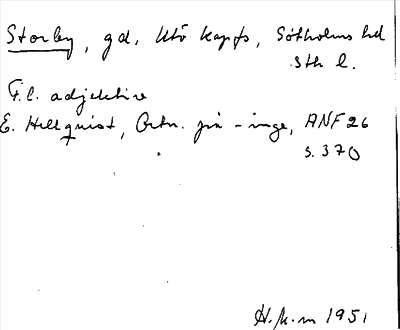 Storby, gd, Utö kapfs, Sotholms hd
Sth l.
F.l. adjektive
E. Hellquist, Ortn. på -inge, ANF 26
s. 370
H.k.m 1951